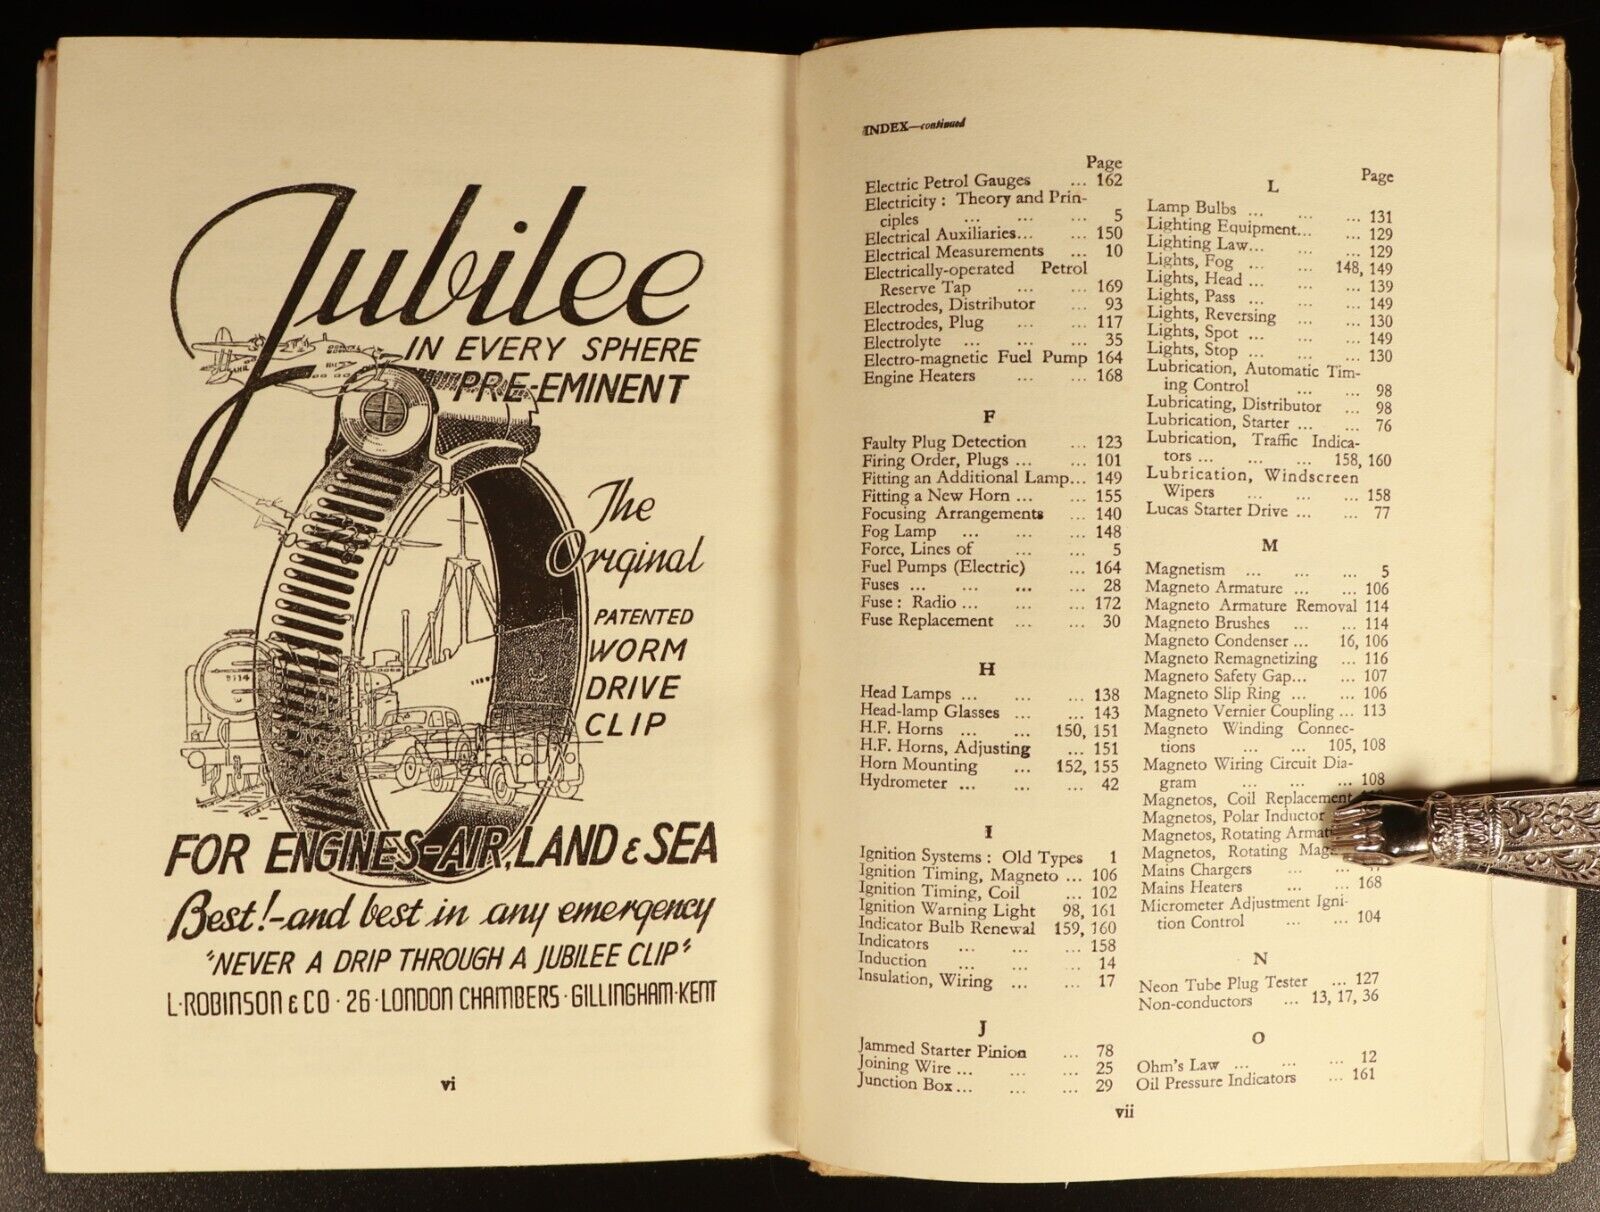 Jubilee
IN EVERY SPHERE
PRE-EMINENT
The
Original
PATENTED
WORM
DRIVE
CLIP
FOR ENGINES-AIR, LAND & SEA
Best!-and best in any emergency
"NEVER A DRIP THROUGH A JUBILEE CLIP"
L·ROBINSON & CO · 26 · LONDON CHAMBERS · GILLINGHAM · KENT
vi
INDEX—continued
Page
Electric Petrol Gauges ... 162
Electricity : Theory and Prin-
ciples ... ... ... 5
Electrical Auxiliaries... ... 150
Electrical Measurements ... 10
Electrically-operated Petrol
Reserve Tap ... ... 169
Electrodes, Distributor ... 93
Electrodes, Plug ... ... 117
Electrolyte ... ... ... 35
Electro-magnetic Fuel Pump 164
Engine Heaters ... ... 168
F
Faulty Plug Detection ... 123
Firing Order, Plugs ... ... 101
Fitting an Additional Lamp... 149
Fitting a New Horn ... ... 155
Focusing Arrangements ... 140
Fog Lamp ... ... ... 148
Force, Lines of ... ... 5
Fuel Pumps (Electric) ... 164
Fuses ... ... ... ... 28
Fuse : Radio ... ... ... 172
Fuse Replacement ... ... 30
H
Head Lamps ... ... ... 138
Head-lamp Glasses ... ... 143
H.F. Horns ... ... 150, 151
H.F. Horns, Adjusting ... 151
Horn Mounting ... 152, 155
Hydrometer ... ... ... 42
I
Ignition Systems : Old Types 1
Ignition Timing, Magneto ... 106
Ignition Timing, Coil ... 102
Ignition Warning Light 98, 161
Indicator Bulb Renewal 159, 160
Indicators ... ... ... 158
Induction ... ... ... 14
Insulation, Wiring ... ... 17
J
Jammed Starter Pinion ... 78
Joining Wire ... ... ... 25
Junction Box ... ... ... 29
Page
L
Lamp Bulbs ... ... ... 131
Lighting Equipment... ... 129
Lighting Law... ... ... 129
Lights, Fog ... ... 148, 149
Lights, Head ... ... ... 139
Lights, Pass ... ... ... 149
Lights, Reversing ... ... 130
Lights, Spot ... ... ... 149
Lights, Stop ... ... ... 130
Lubrication, Automatic Tim-
ing Control ... ... 98
Lubricating, Distributor ... 98
Lubrication, Starter ... ... 76
Lubrication, Traffic Indica-
tors ... ... ... 158, 160
Lubrication, Windscreen
Wipers ... ... ... 158
Lucas Starter Drive ... ... 77
M
Magnetism ... ... ... 5
Magneto Armature ... ... 106
Magneto Armature Removal 114
Magneto Brushes ... ... 114
Magneto Condenser ... 16, 106
Magneto Remagnetizing ... 116
Magneto Safety Gap... ... 107
Magneto Slip Ring ... ... 106
Magneto Vernier Coupling ... 113
Magneto Winding Connec-
tions ... ... 105, 108
Magneto Wiring Circuit Dia-
gram ... ... ... 108
Magnetos, Coil Replacement
Magnetos, Polar Inductor
Magnetos, Rotating
Magnetos, Rotating
Mains Chargers ...
Mains Heaters ... ... 168
Micrometer Adjustment Igni-
tion Control ... ... 104
N
Neon Tube Plug Tester ... 127
Non-conductors ... 13, 17, 36
O
Ohm's Law ... ... ... 12
Oil Pressure Indicators ... 161
vii